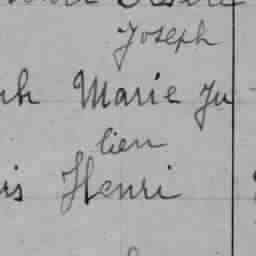 Joseph
Marie Ju
lien
is Henri